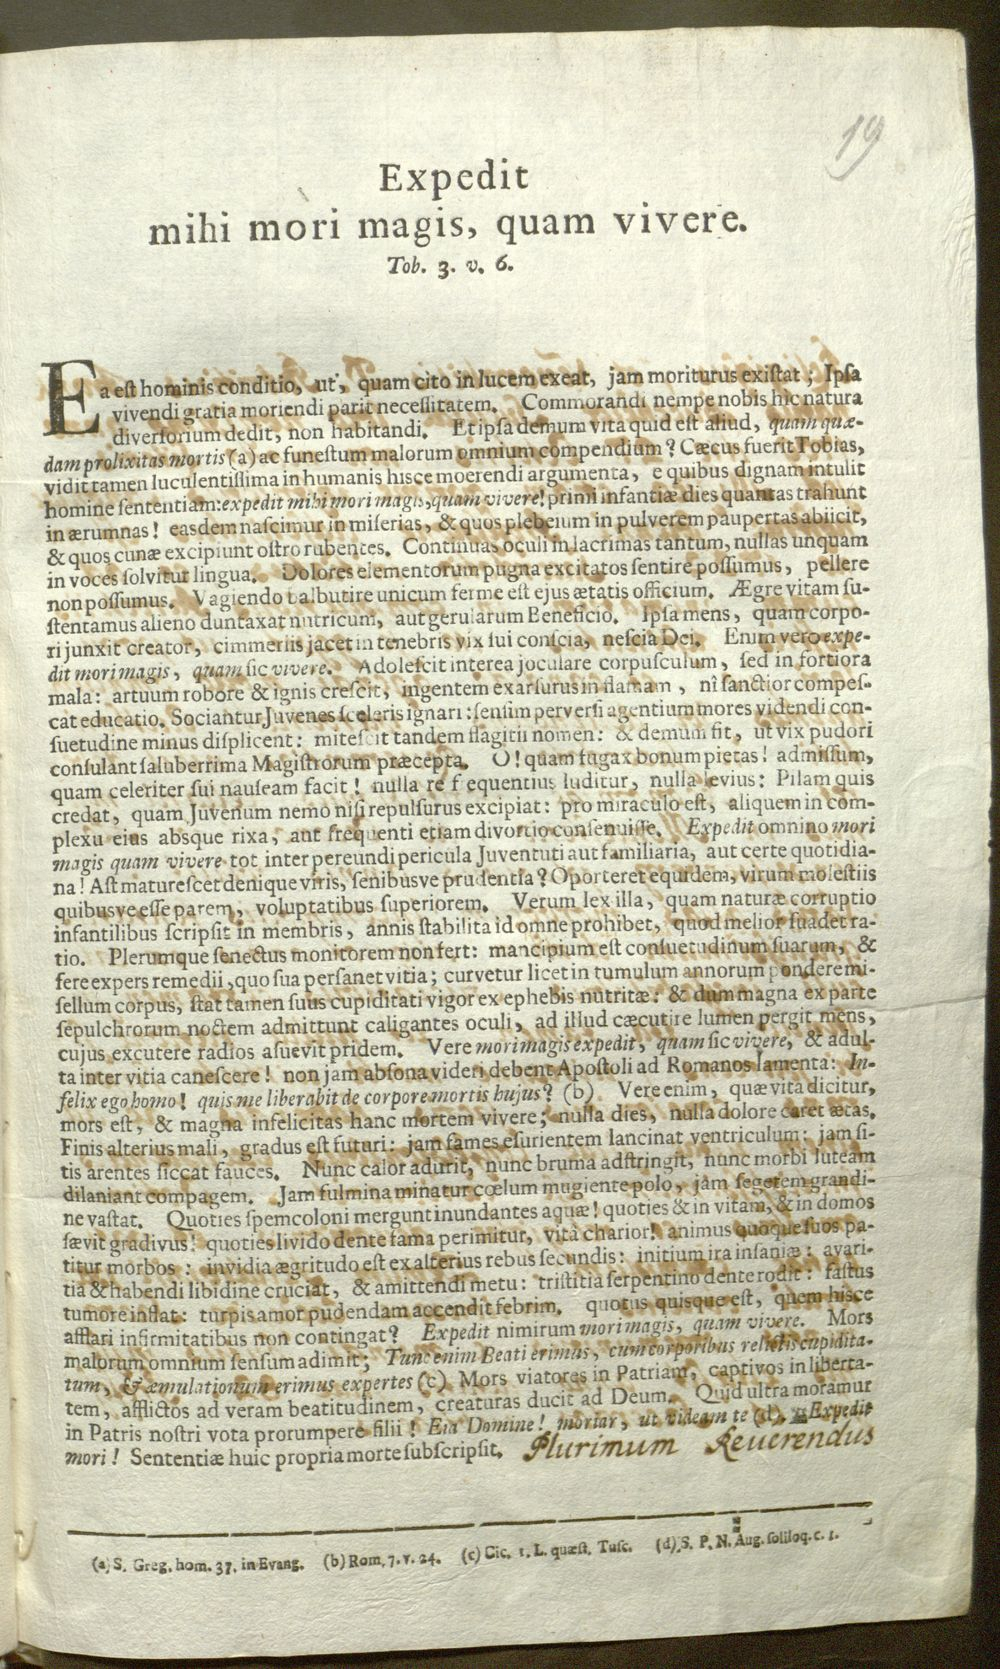 19
Expedit
mihi mori magis, quam vivere.
Tob. 3. v. 6.
Ea est hominis conditio, ut, quam cito in lucem exeat, jam moriturus existat; Ipsa
vivendi gratia moriendi parit necessitatem. Commorandi nempe nobis hic natura
diversorium dedit, non habitandi. Et ipsa demum vita quid est aliud, quam quæ-
dam prolixitas mortis (a) ac funestum malorum omnium compendium? Cæcus fuerit Tobias,
vidit tamen luculentissima in humanis hisce moerendi argumenta, e quibus dignam intulit
homine sententiam: expedit mihi mori magis, quam vivere! primi infantiæ dies quantas trahunt
in ærumnas! easdem nascimur in miserias, & quos plebeium in pulverem paupertas abiicit,
& quos cunæ excipiunt ostro rubentes. Continuas oculi in lacrimas tantum, nullas unquam
in voces solvitur lingua. Dolores elementorum pugna excitatos sentire possumus, pellere
non possumus. Vagiendo balbutire unicum ferme est ejus ætatis officium. Ægre vitam su-
stentamus alieno duntaxat nutricum, aut gerularum Beneficio. Ipsa mens, quam corpo-
ri junxit creator, cimmeriis jacet in tenebris vix sui conscia, nescia Dei. Enim vero expe-
dit mori magis, quam sic vivere. Adolescit interea joculare corpusculum, sed in fortiora
mala: artuum robore & ignis crescit, ingentem exarsurus in flamam, nî sanctior compes-
cat educatio. Sociantur Juvenes sceleris ignari: sensim perversi agentium mores videndi con-
suetudine minus displicent: mitescit tandem flagitii nomen: & demum fit, ut vix pudori
consulant saluberrima Magistrorum præcepta. O! quam fugax bonum pietas! admissum,
quam celeriter sui nauseam facit! nulla re f equentius luditur, nulla levius: Pilam quis
credat, quam Juvenum nemo nisi repulsurus excipiat: pro miraculo est, aliquem in com-
plexu eius absque rixa, aut frequenti etiam divortio consenuisse. Expedit omnino mori
magis quam vivere tot inter pereundi pericula Juventuti aut familiaria, aut certe quotidia-
na! Ast maturescet denique viris, senibusve prudentia? Oporteret equidem, virum molestiis
quibusve esse parem, voluptatibus superiorem. Verum lex illa, quam naturæ corruptio
infantilibus scripsit in membris, annis stabilita id omne prohibet, quod melior suadet ra-
tio. Plerumque senectus monitorem non fert: mancipium est consuetudinum suarum, &
fere expers remedii, quo sua persanet vitia; curvetur licet in tumulum annorum pondere mi-
sellum corpus, stat tamen suus cupiditati vigor ex ephebis nutritæ: & dum magna ex parte
sepulchrorum noctem admittunt caligantes oculi, ad illud cæcutire lumen pergit mens,
cujus excutere radios asuevit pridem. Vere mori magis expedit, quam sic vivere, & adul-
ta inter vitia canescere! non jam absona videri debent Apostoli ad Romanos lamenta: In-
felix ego homo! quis me liberabit de corpore mortis hujus? (b) Vere enim, quæ vita dicitur,
mors est, & magna infelicitas hanc mortem vivere; nulla dies, nulla dolore caret ætas.
Finis alterius mali, gradus est futuri: jam fames esurientem lancinat ventriculum: jam si-
tis arentes siccat fauces. Nunc calor adurit, nunc bruma adstringit, nunc morbi luteam
dilaniant compagem. Jam fulmina minatur cœlum mugiente polo, jam segetem grandi-
ne vastat. Quoties spem coloni mergunt inundantes aquæ! quoties & in vitam, & in domos
sævit gradivus! quoties livido dente fama perimitur, vitâ charior! animus quoque suos pa-
titur morbos: invidia ægritudo est ex alterius rebus secundis: initium ira insaniæ: avari-
tia & habendi libidine cruciat, & amittendi metu: tristitia serpentino dente rodit: fastus
tumore inflat: turpis amor pudendam accendit febrim. quotus quisque est, quem hisce
afflari infirmitatibus non contingat? Expedit nimirum mori magis, quam vivere. Mors
malorum omnium sensum adimit; Tunc enim Beati erimus, cum corporibus relictis cupidita-
tum, & æmulationum erimus expertes (c) Mors viatores in Patriam, captivos in liberta-
tem, afflictos ad veram beatitudinem, creaturas ducit ad Deum. Quid ultra moramur
in Patris nostri vota prorumpere filii! Eia Domine! moriar, ut videam te (d). Expedit
mori! Sententiæ huic propria morte subscripsit. Plurimum Reverendus
(a) S. Greg. hom. 37. in Evang. (b) Rom. 7. v. 24. (c) Cic. 1. L. quæst. Tusc. (d) S. P. N. Aug. soliloq. c. 1.